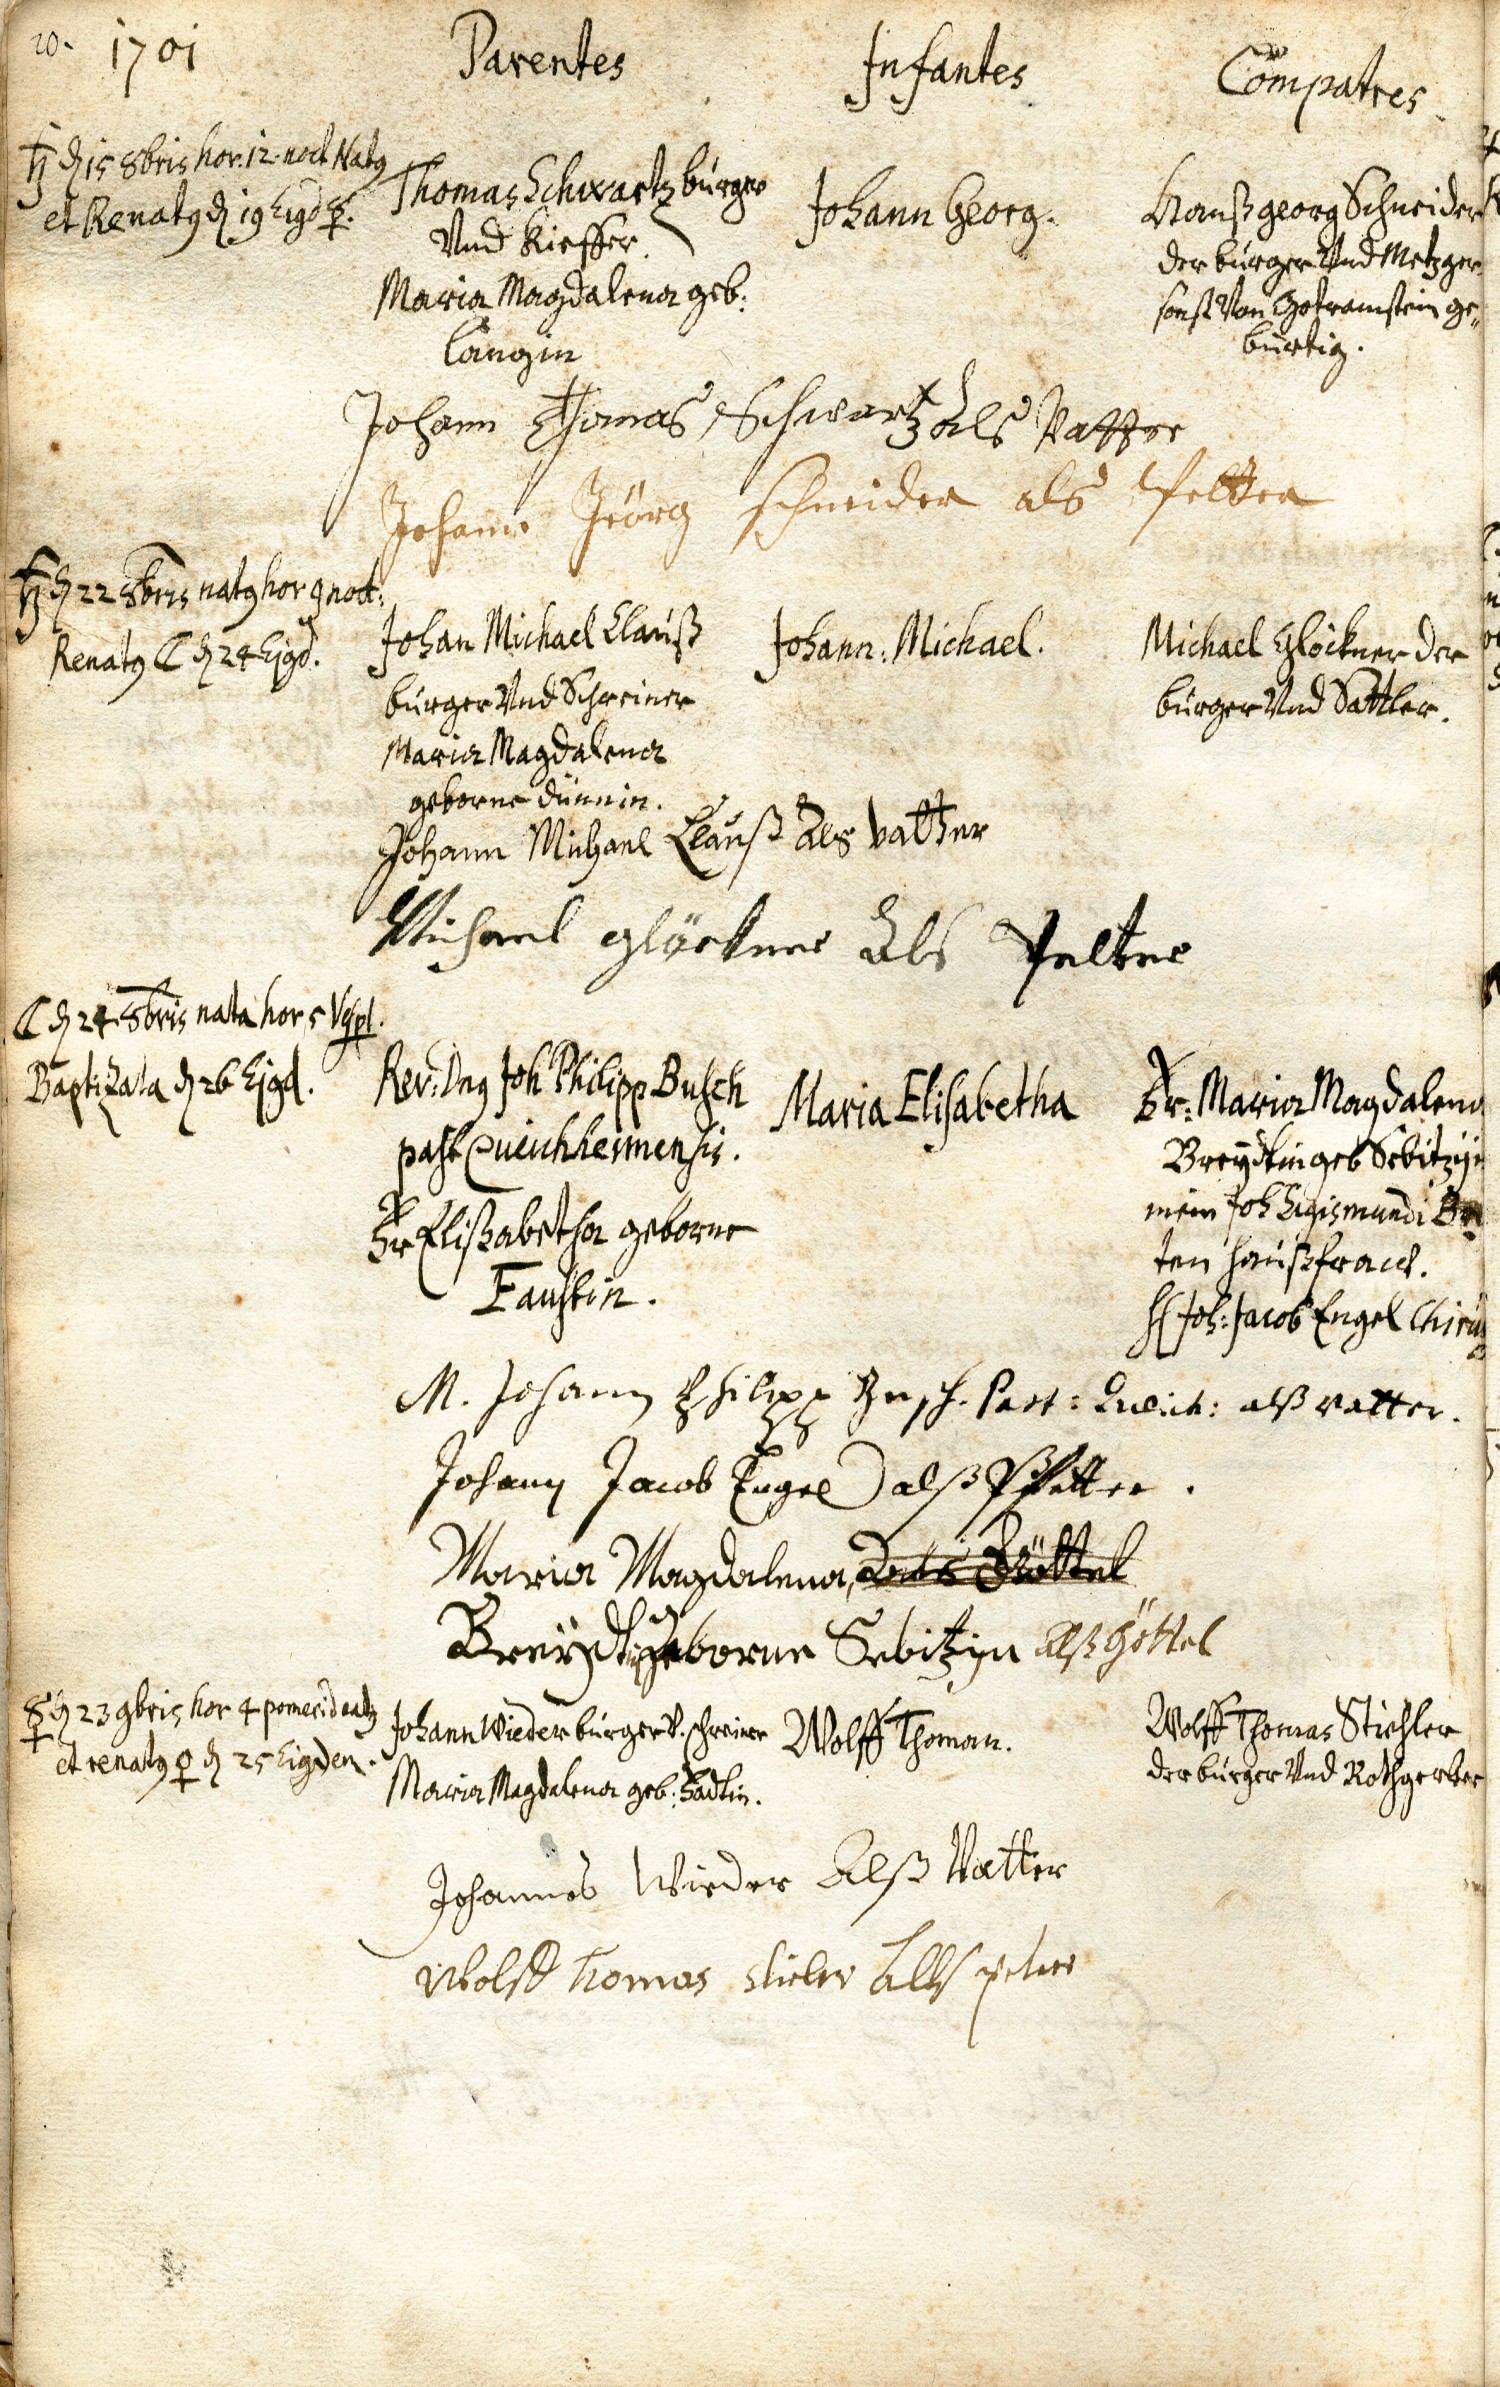 20. 1701
Parentes
Infantes
Compatres
♄ d 15 8bris hor. 12. noct Natq
et Renatq d 19 Eigd ☿.
Thomas Schwartz bürger
Vnd Kieffer.
Maria Magdalena geb:
Langin
Johann Georg.
Hanß georg Schneider
der bürger Vnd Metzger
sonst Von Gotramstein ge„
bürtig.
Johann Thomas Schwartz als Vatter
Johann Jeörg schneider als Petter
♄ d 22 8bris natq hor 9 noct:
Renatq ☾ d 24 Ejgd.
Johan Michael Clauß
bürger Vnd Schreiner
Maria Magdalena
geborne dünnin.
Johann: Michael.
Michael Glöckner der
bürger Vnd Sattler.
Johann Michael Clauß als Vatter
Michael glöckner als Petter
☾ d 24. 8bris nata hor 5 Vesp.
Baptizata d 26 Ejgd.
Rev: Dnq Joh Philipp Busch
past Queichheimensis.
Fr Elißabetha geborne
Faustin.
Maria Elisabetha
Fr: Maria Magdalena
Breydtin geb Sebitzÿin
mein Joh Sigismundi
ten haußfraw.
H Joh: Jacob Engel Chiru
M. Johann Philipp Busch. Past: Queich: alß vatter.
Johann Jacob Engel alß Pfetter.
Maria Magdalena, als Göttel
Breÿdtin geborne Sebitzin alß Göttel
☿ d 23 9bris hor 4 pomerid natq
et renatq ♀ d 25 Eigden.
Johann Wieder bürger V. schreiner
Maria Magdalena geb:
Wolff Thoman.
Wolff Thomas Stiehler
der bürger Vnd Rothgerber
Johannes Wieder Alß Vatter
Wolff Thomas stieler alls peter